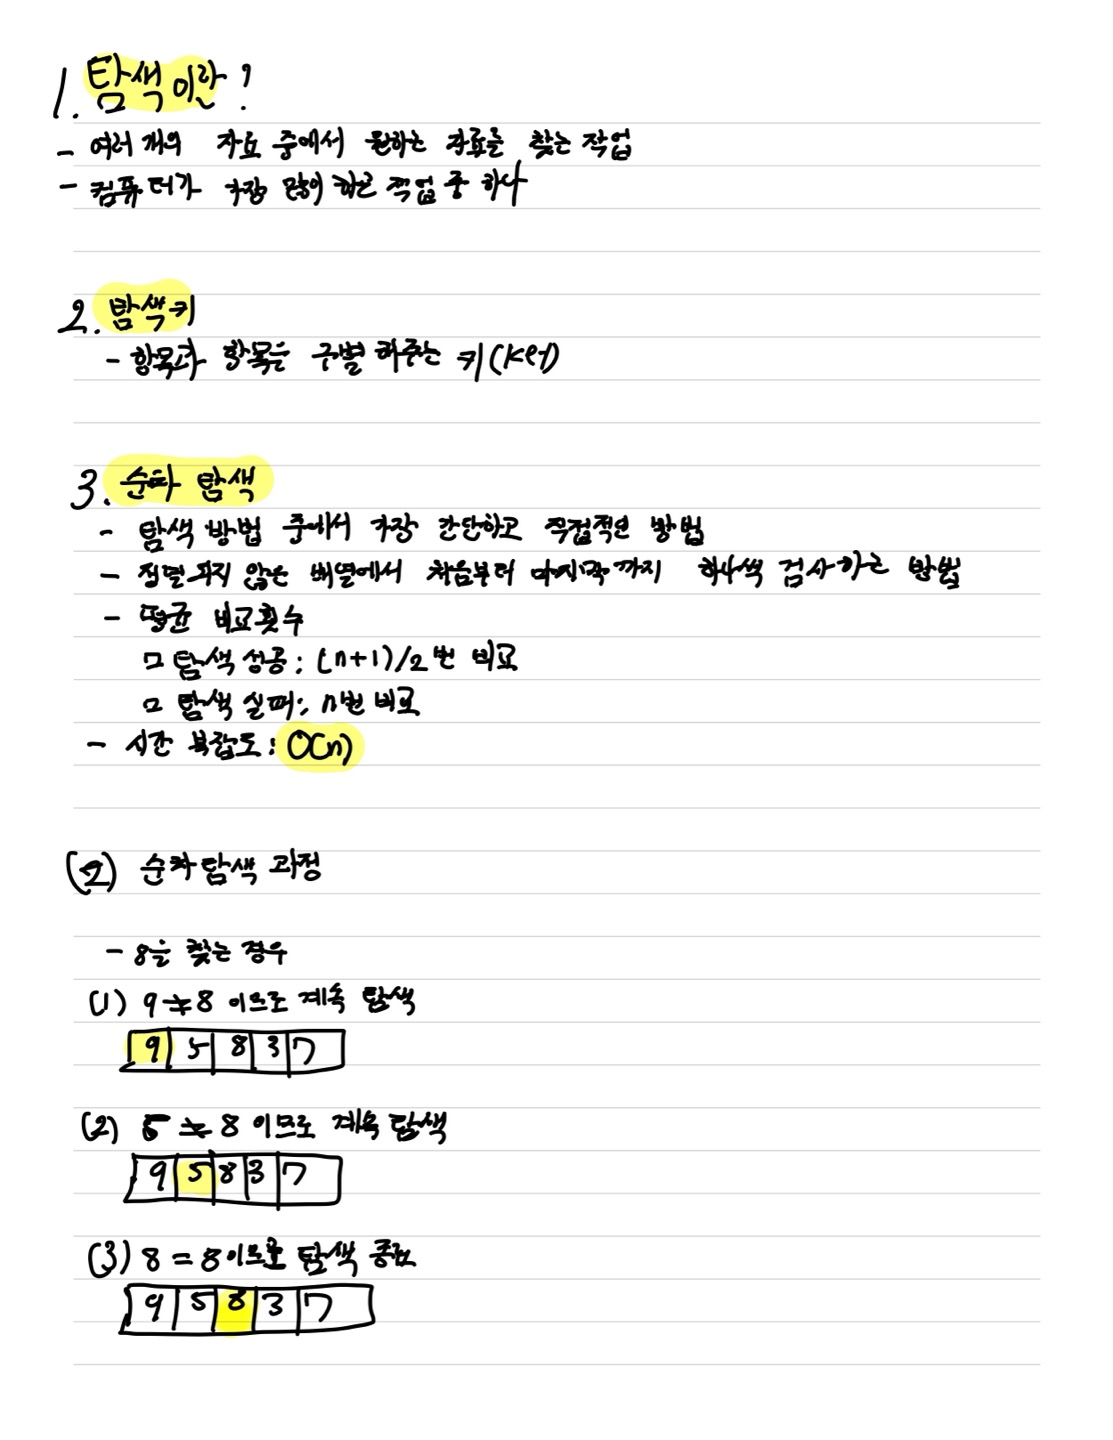 1. 탐색이란?
- 여러 개의 자료 중에서 원하는 자료를 찾는 작업
- 컴퓨터가 가장 많이 하는 작업 중 하나
2. 탐색키
- 항목과 항목을 구별 해주는 키(key)
3. 순차 탐색
- 탐색 방법 중에서 가장 간단하고 직접적인 방법
- 정렬되지 않은 배열에서 처음부터 마지막까지 하나씩 검사하는 방법
- 평균 비교횟수
□ 탐색 성공: (n+1)/2번 비교
□ 탐색 실패: n번 비교
- 시간 복잡도: O(n)
(2) 순차탐색 과정
- 8을 찾는 경우
(1) 9≠8 이므로 계속 탐색
9 5 8 3 7
(2) 5 ≠ 8 이므로 계속 탐색
9 5 8 3 7
(3) 8 = 8이므로 탐색 종료
9 5 8 3 7